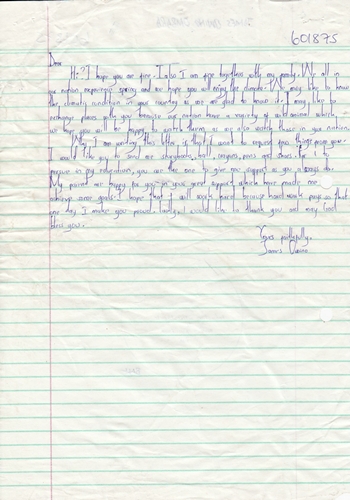 601875
Dear
Hi? I hope you are fine. I also I am fine together with my family. We all in
our nation experiencing spring and we hope you will enjoy the climate. We may like to know
the climatic condition in your country as we are glad to know it. I may like to
exchange places with you because our nation have a majority of wild animal which
we hope you will be happy to watch them, as we also watch those in your nation.
Why I am writing this letter is that I want to request few things from you.
I would like you to send me storybooks, colours, pens and shoes. For to
pursue in my education, you are the one to give me support as you always do.
My parent are happy for you in your great support which have made me
achieve some goals. I hope that I will work hard because hard work pays so that
one day I make you proud. Lastly, I would like to thank you and may God
bless you.
Yours faithfully,
James